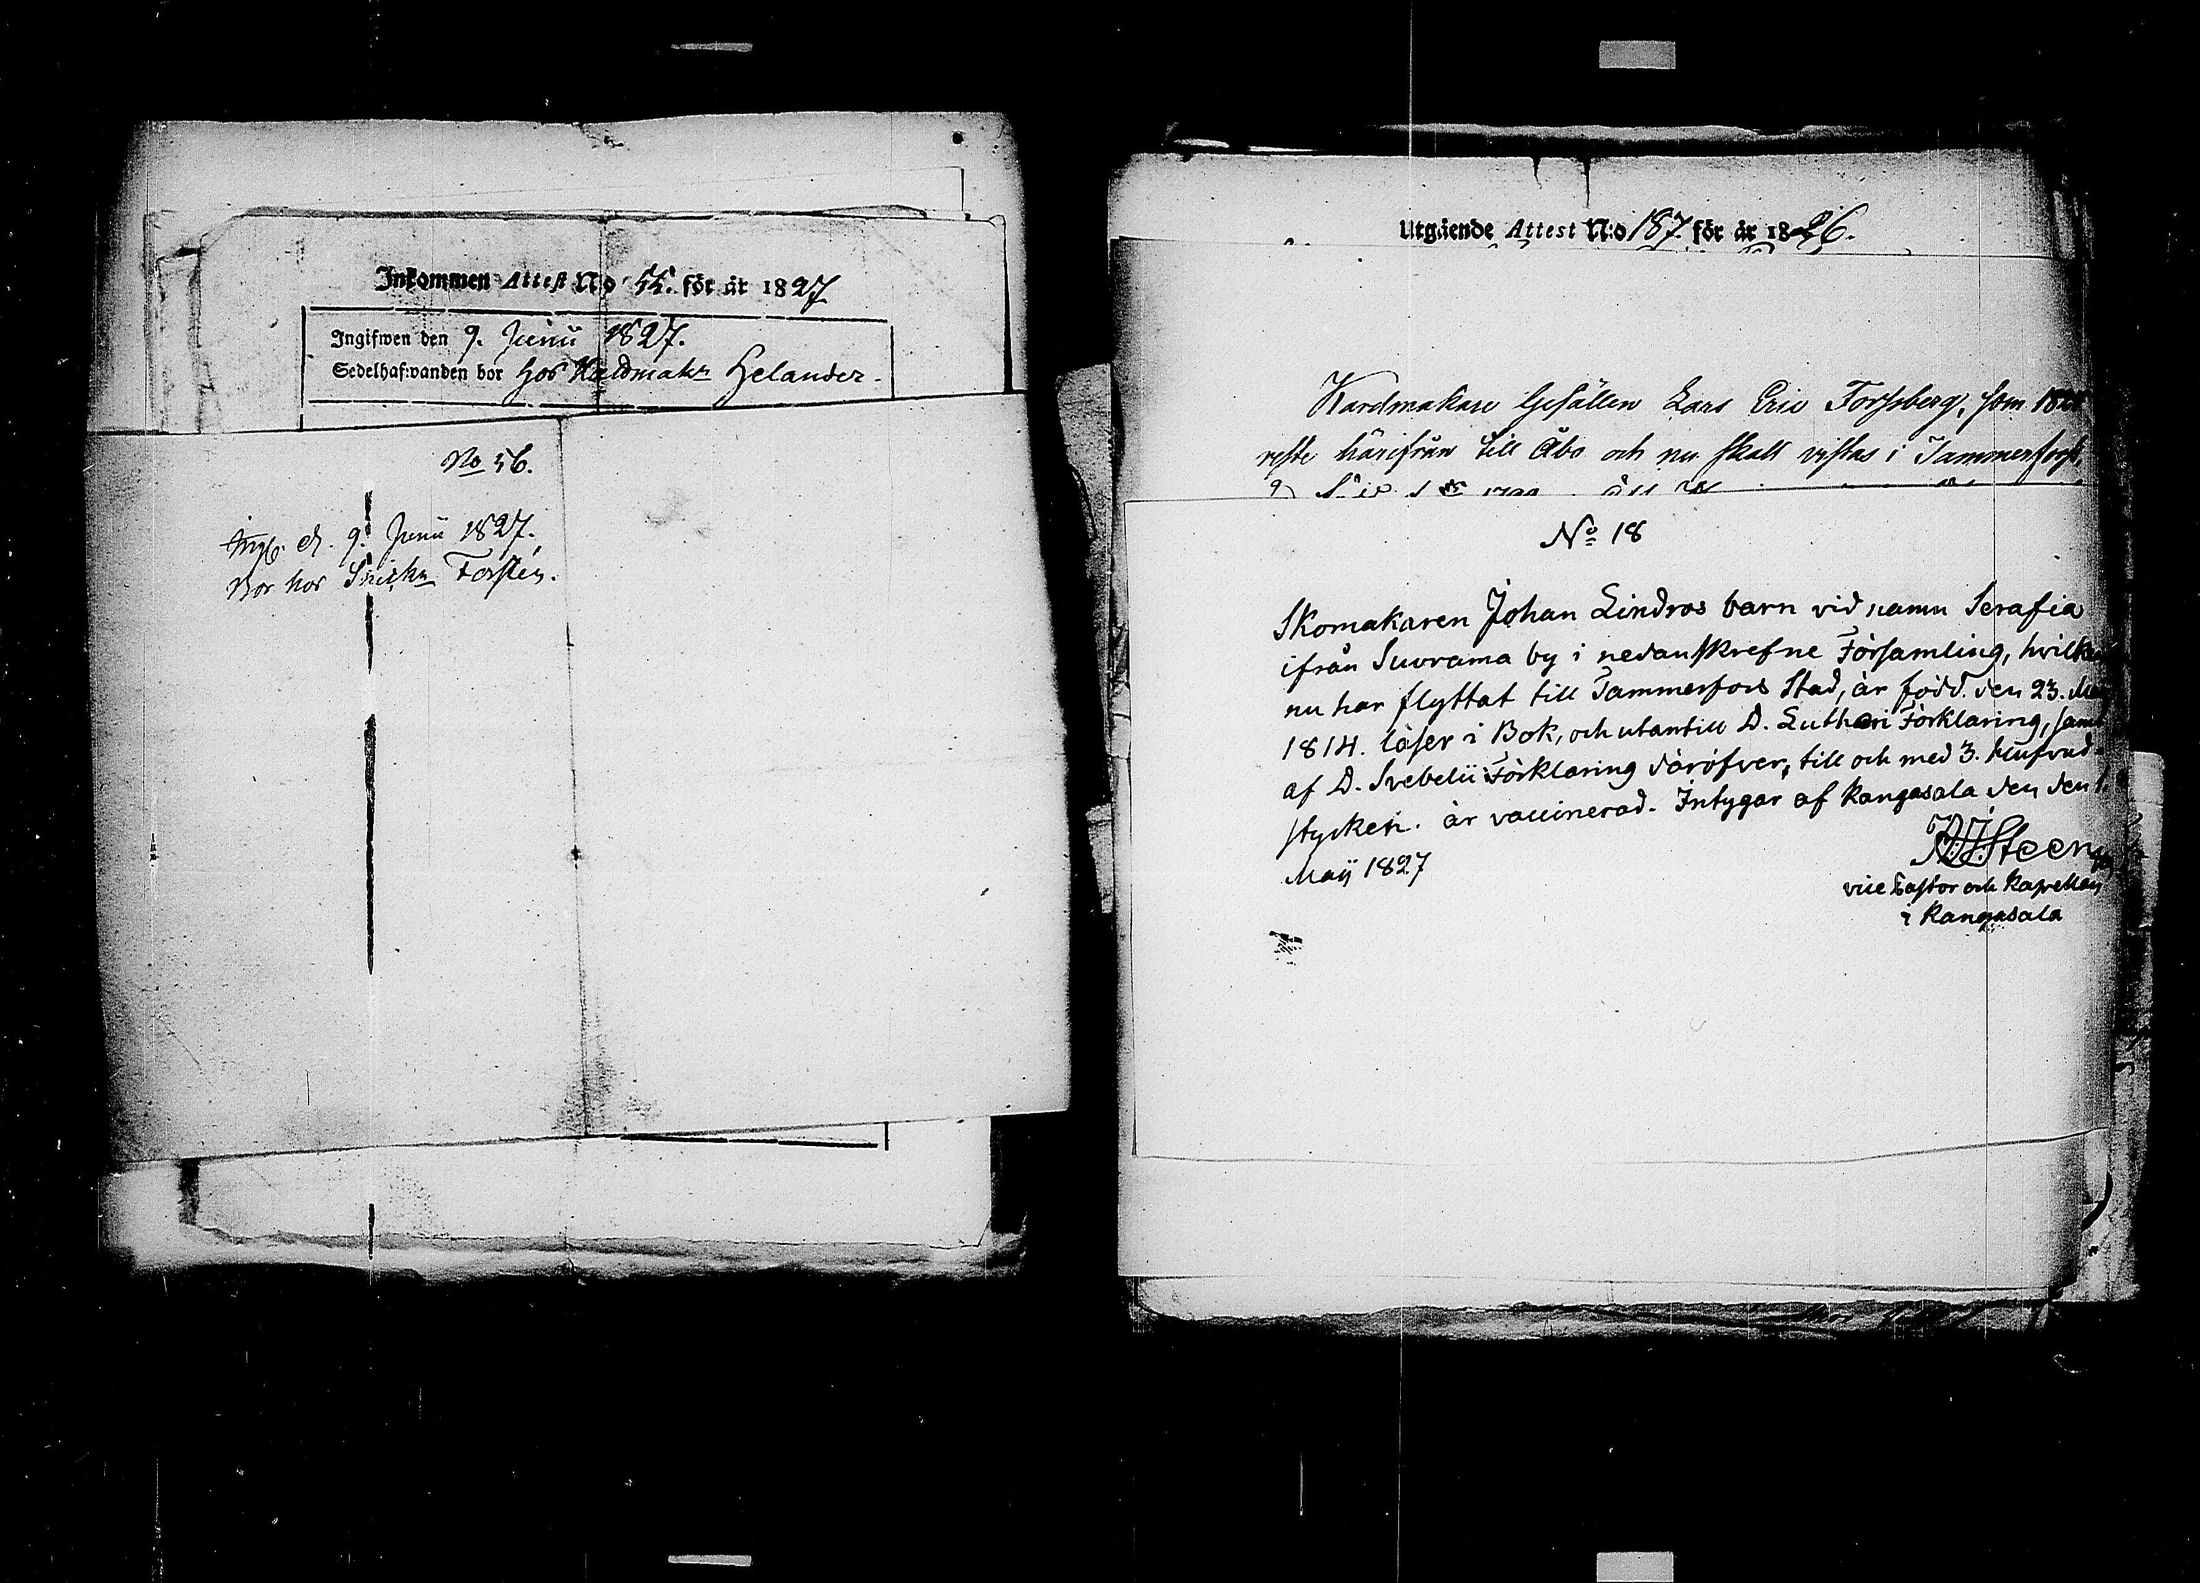 Inkommen Attest No 55. för år 1827
Ingifwen den 9. Junii 1827.
Sedelhafwanden bor hos Kardmakn Helander.
No 56.
Ingb. d. 9. Junii 1827.
Bor hos Snickn Forstén.
Utgående Attest N:o 187 för år 1826.
Kardmakare Gesällen Lars Eric Forssberg, som
reste härifrån till Åbo och nu skall vistas i Tammerfors,
No 18
Skomakaren Johan Lindros barn vid namn Serafia
ifrån Suorama by i nedanskrefne Församling,
nu har flyttat till Tammerfors Stad, är född den 23.
1814. läser i Bok, och utantill D. Lutheri Förklaring, samt
af D. Svebelii Förklaring däröfver, till och med 3. hufvud-
stycken. är vaccinerad. Intygar af Kangasala den den 1.
Maij 1827
Steen
vice Pastor och Kapellan
i Kangasala